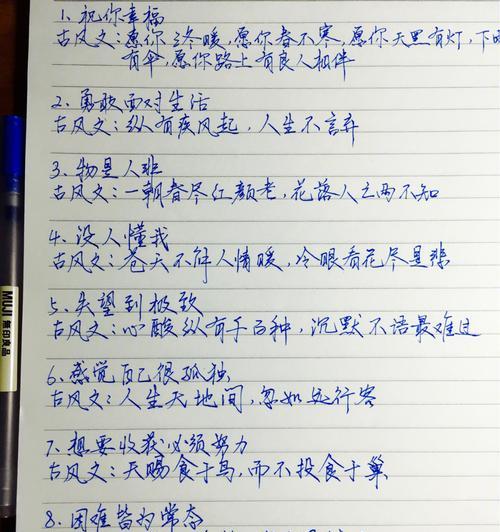 1、祝你幸福
古风文:愿你冬暖,愿你春不寒,愿你天黑有灯,下雨
有伞,愿你路上有良人相伴
2、勇敢面对生活
古风文:纵有疾风起,人生不言弃
3、物是人非
古风文:一朝春尽红颜老,花落人亡两不知
4、没人懂我
古风文:苍天不解人情暖,冷眼看花尽是悲
5、失望到极致
古风文:心酸纵有千百种,沉默不语最难过
6、感觉自己很孤独
古风文:人生天地间,忽如远行客
7、想要收获必须努力
古风文:天赐食于鸟,而不投食于巢
8、困难皆为常态
MUJI 無印良品